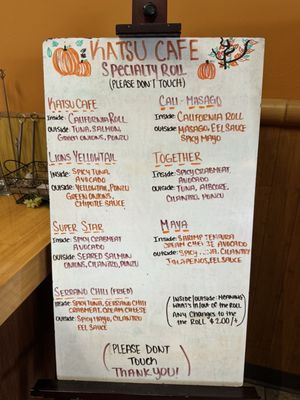 KATSU CAFE
SPECIALTY ROLL
(PLEASE DON'T TOUCH)
KATSU CAFE
Inside: CALIFORNIA ROLL
OUTSIDE: TUNA, SALMON
GREEN ONIONS, PONZU
LIONS YELLOWTAIL
Inside: SPICY TUNA,
AVOCADO
OUTSIDE: YELLOWTAIL, PONZU
GREEN ONIONS,
CHIPOTLE SAUCE
SUPER STAR
Inside: SPICY CRABMEAT
AVOCADO
OUTSIDE: SEARED SALMON
ONIONS, CILANTRO, PONZU
SERRANO CHILI (FRIED)
Inside: SPICY TUNA, SERRANO CHILI
CRABMEAT, CREAM CHEESE
OUTSIDE: SPICY MAYO, CILANTRO
EEL SAUCE
CALI-MASAGO
Inside: CALIFORNIA ROLL
OUTSIDE: MASAGO, EEL SAUCE
SPICY MAYO
TOGETHER
Inside: SPICY CRABMEAT,
AVOCADO
OUTSIDE: TUNA, ALBCORE,
CILANTRO, PONZU
MAYA
Inside: SHRIMP TEMPURA
CREAM CHEESE, AVOCADO
OUTSIDE: SPICY CILANTRO
JALAPENOS, EEL SAUCE
(INSIDE/OUTSIDE: MEANING
WHAT'S IN/OUT OF THE ROLL
ANY CHANGES TO THE
THE ROLL $2.00/+)
(PLEASE DONT
TOUCH
THANK YOU!)